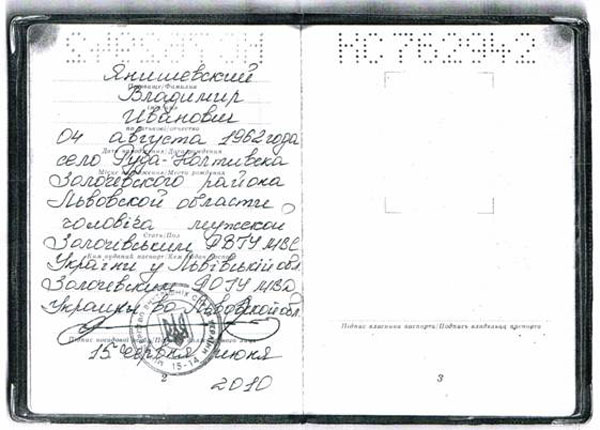 НС 762942
Янишевский
Прізвище/Фамилия
Владимир
Иванович
по батькові/отчество
04 августа 1962 года
Дата народження/Дата рождения
село Руда-Колтивска
Місце народження/Место рождения
Золочевского района
Львовской области
чоловіча мужской
Стать/Пол
Золочівським РВГУ МВС
Ким виданий паспорт/Кем выдан паспорт
України у Львівській обл.
Золочевским РОГУ МВД
Украины во Львовской обл.
15 червня июня
2010
2
Підпис власника паспорта/Подпись владельца паспорта
3